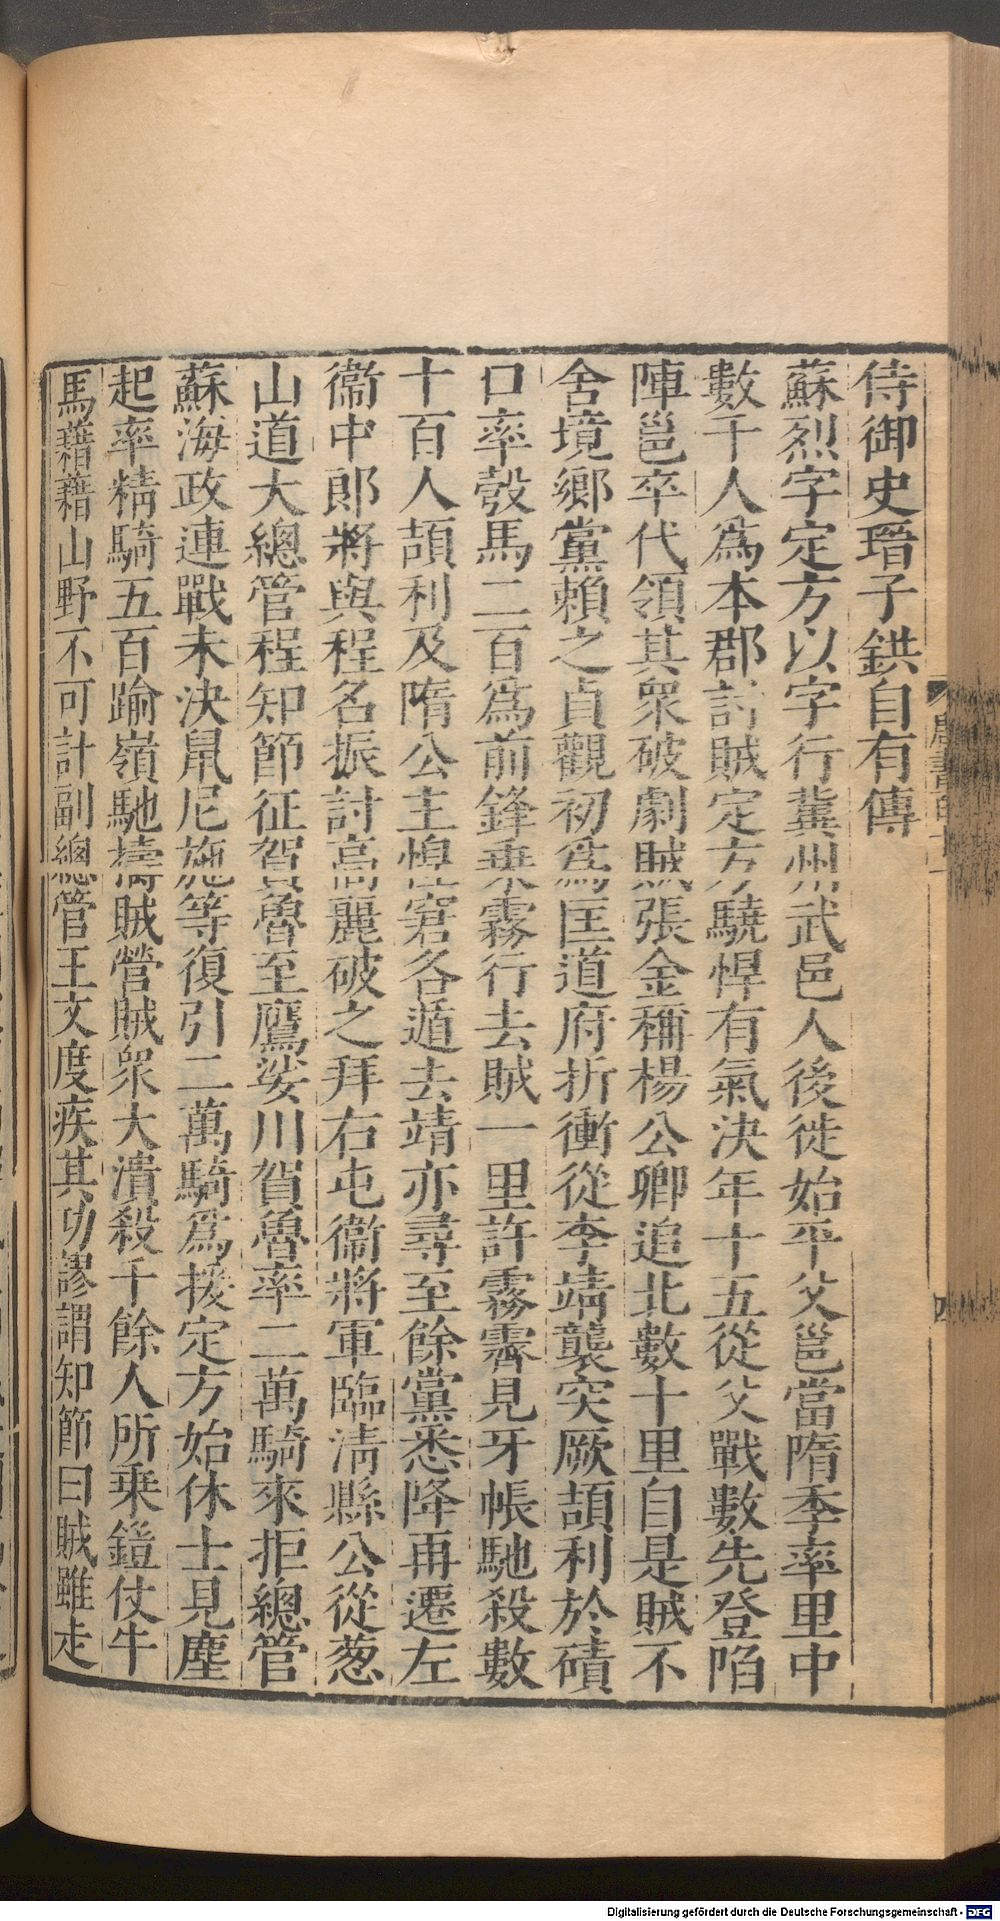 侍御史瑨子鉷自有傳
蘇烈字定方以字行冀州武邑人後徙始平父邕當隋季率里中
數千人爲本郡討賊定方驍悍有氣決年十五從父戰數先登陷
陣邕卒代領其衆破劇賊張金稱楊公卿追北數十里自是賊不
舍境鄉黨賴之貞觀初爲匡道府折衝從李靖襲突厥頡利於磧
口率彀馬二百爲前鋒乗霧行去賊一里許霧霽見牙帳馳殺數
十百人頡利及隋公主惶窘各遁去靖亦尋至餘黨悉降再遷左
衞中郎將與程名振討高麗破之拜右屯衞將軍臨淸縣公從葱
山道大總管程知節征賀魯至鷹娑川賀魯率二萬騎來拒總管
蘇海政連戰未決鼠尼施等復引二萬騎爲援定方始休士見塵
起率精騎五百踰嶺馳擣賊營賊衆大潰殺千餘人所乗鎧仗牛
馬藉藉山野不可計副總管王文度疾其功謬謂知節曰賊雖走
四
Digitalisierung gefördert durch die Deutsche Forschungsgemeinschaft - DFG